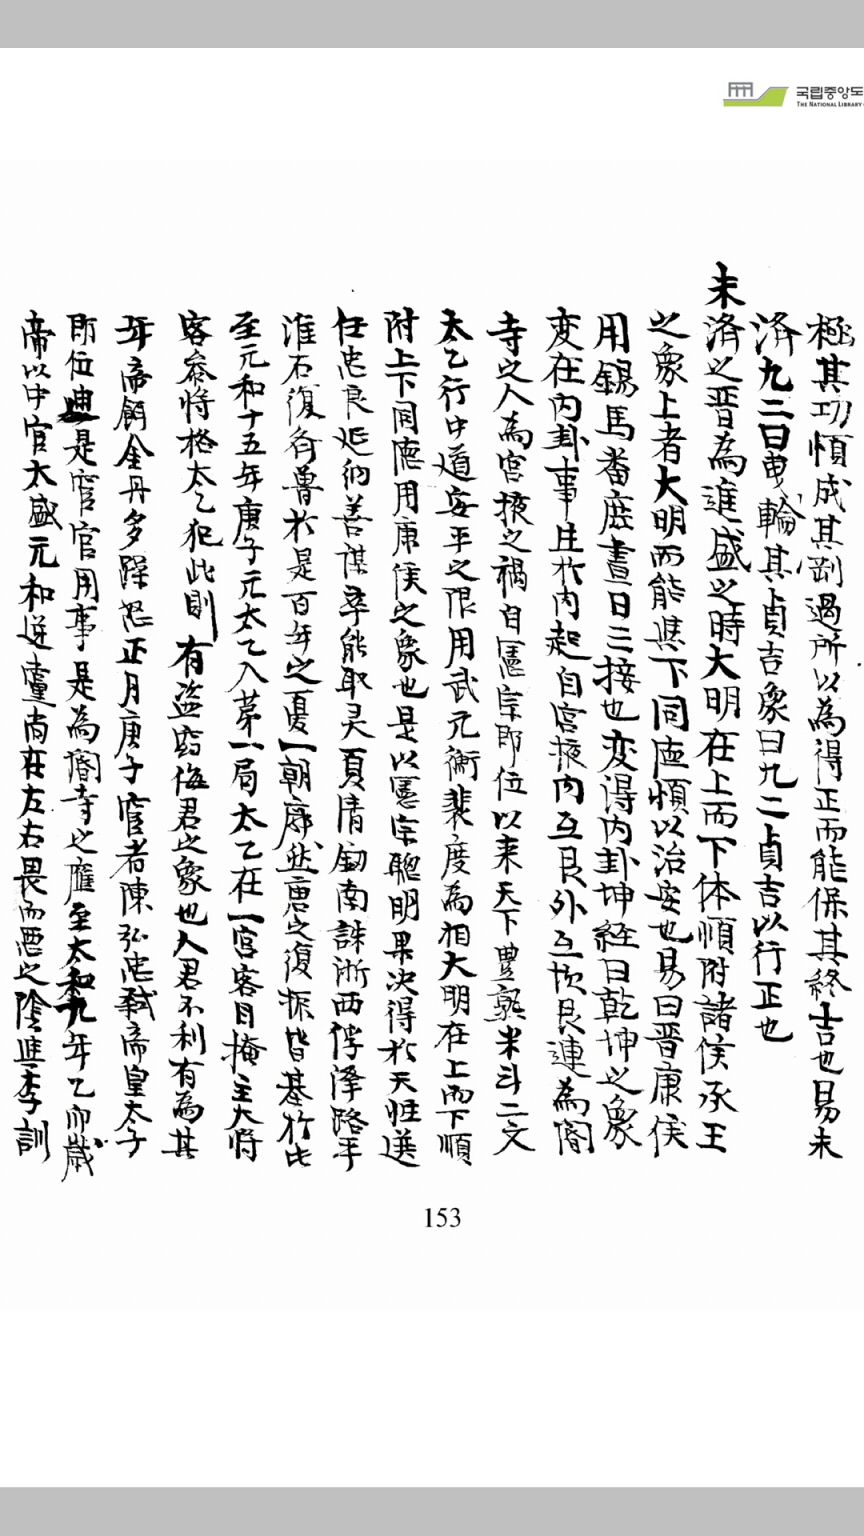 국립중앙도
THE NATIONAL LIBRARY
極其功慎成其剛過所以為得正而能保其終吉也易未
済九二曰曳輪其貞吉象曰九二貞吉以行正也
未済之晋為進盛之時大明在上而下体順附諸侯承王
之象上者大明而能與下同德慎以治安也易曰晋康侯
用錫馬蕃庶晝日三接也变得内卦坤経曰乾坤之象
变在内卦事生於内起自宮掖内互艮外互坎艮連為閽
寺之人為宮掖之禍自憲宗即位以来天下豊熟米斗二文
太乙行中道安平之限用武元衡裴度為相大明在上而下順
附上下同德用康侯之象也是以憲宗聰明果决得於天性選
任忠良延納善谋卒能取灵夏清劍南誅浙西俘澤潞平
淮右復齊魯於是百年之憂一朝廓然唐之復振皆基於此
至元和十五年庚子元太乙入苐一局太乙在一宮客目掩主大將
客叅將格太乙犯此則有盗窃侮君之象也人君不利有為其
年帝餌金丹多躁怒正月庚子宦者陳弘忠弒帝皇太子
即位典是宦官用事是為閽寺之應至太和九年乙卯歲
帝以中官太盛元和逆黨尚在左右畏而悪之陰進李訓
153